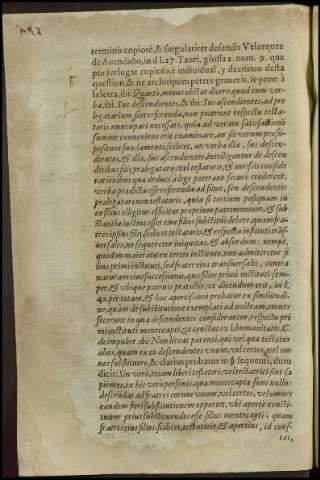 terminis copiosè, & singulariter defendit Velazquez
de Auendaño, in d l. 27. Tauri, glossa 2. num. 9. que
por ser lugar copioso, è indiuidual, y decisiuo desta
question, & ne archipum petere graueris, se pone à
la letra, ibi. Quarto, minus obstat dicere, quod cum ver-
ba, ibi. Sus descendientes, & ibi. Sus ascendientes, ad pre
legatarium sint referenda, non poterunt respectu testa-
toris nuncupari necesarè, quia ad veram satisfactionẽ
summe conueniens erit examinare, an sit verum præsu-
positum fundamentum, scilicet, an verba illa, sus descen-
dientes, & illa, sus ascendientes intelligantur de descen
dentibus filij prælegatarij, vel testatoris, & omissis conside
rationibus qua de ibus à lege poterant secure crederent,
verba prædicta esse referenda ad filios, seu descendentes
prælegatarij non testatoris, quia si tertium post quum in
ex filijs elligitur efficitur proprium patrimonium, & sub
stantia iustius esset eius filius substitui debere, quam fra-
tres ipsius filij, scilicet testatoris, & respectu instituti trãs-
uersales, ne sequeretur iniquitas, & absurdum: nempè,
quod in maioratu ex tertio instituto, non admitteretur fi
lius primi instituti, sed frater eius transuersalis, contra
naturam eius successionis, qua filius primi instituti sem-
per, & vbique patrni prætullit, vt dicendum erit, in l.
40. per totam, & hoc apertissimè probatur ex similitudi-
ne, quam de substitutione exemplari ad nostram, omnes
fecerunt in qua descendentes considerantur, respectu pri
mi instituti mentecapti, vt constat ex l. humanitatis. C.
de impuber. ibi: Non liceat parenti, qui vel qua testatur
alios, quam ex eo descendentes vnum, vel certos, vel om
nes substituere, & clarius probatur in §. sequenti, dum
dicit: Sin verò, etiam liberi testatori, vel testatrici sint sa
pientes, ex his verò personis, qua mentecapta sunt nullus
descendat ad fratres eorum vnum, vel certos, vel omnes
eandem fieri substitutionem oportet, vbi apertè consti-
tuitur prius substituendos esse filios mentecapti, quam
fratres eius filios, scilicet, testatoris, & apertius, id cons-
tat,